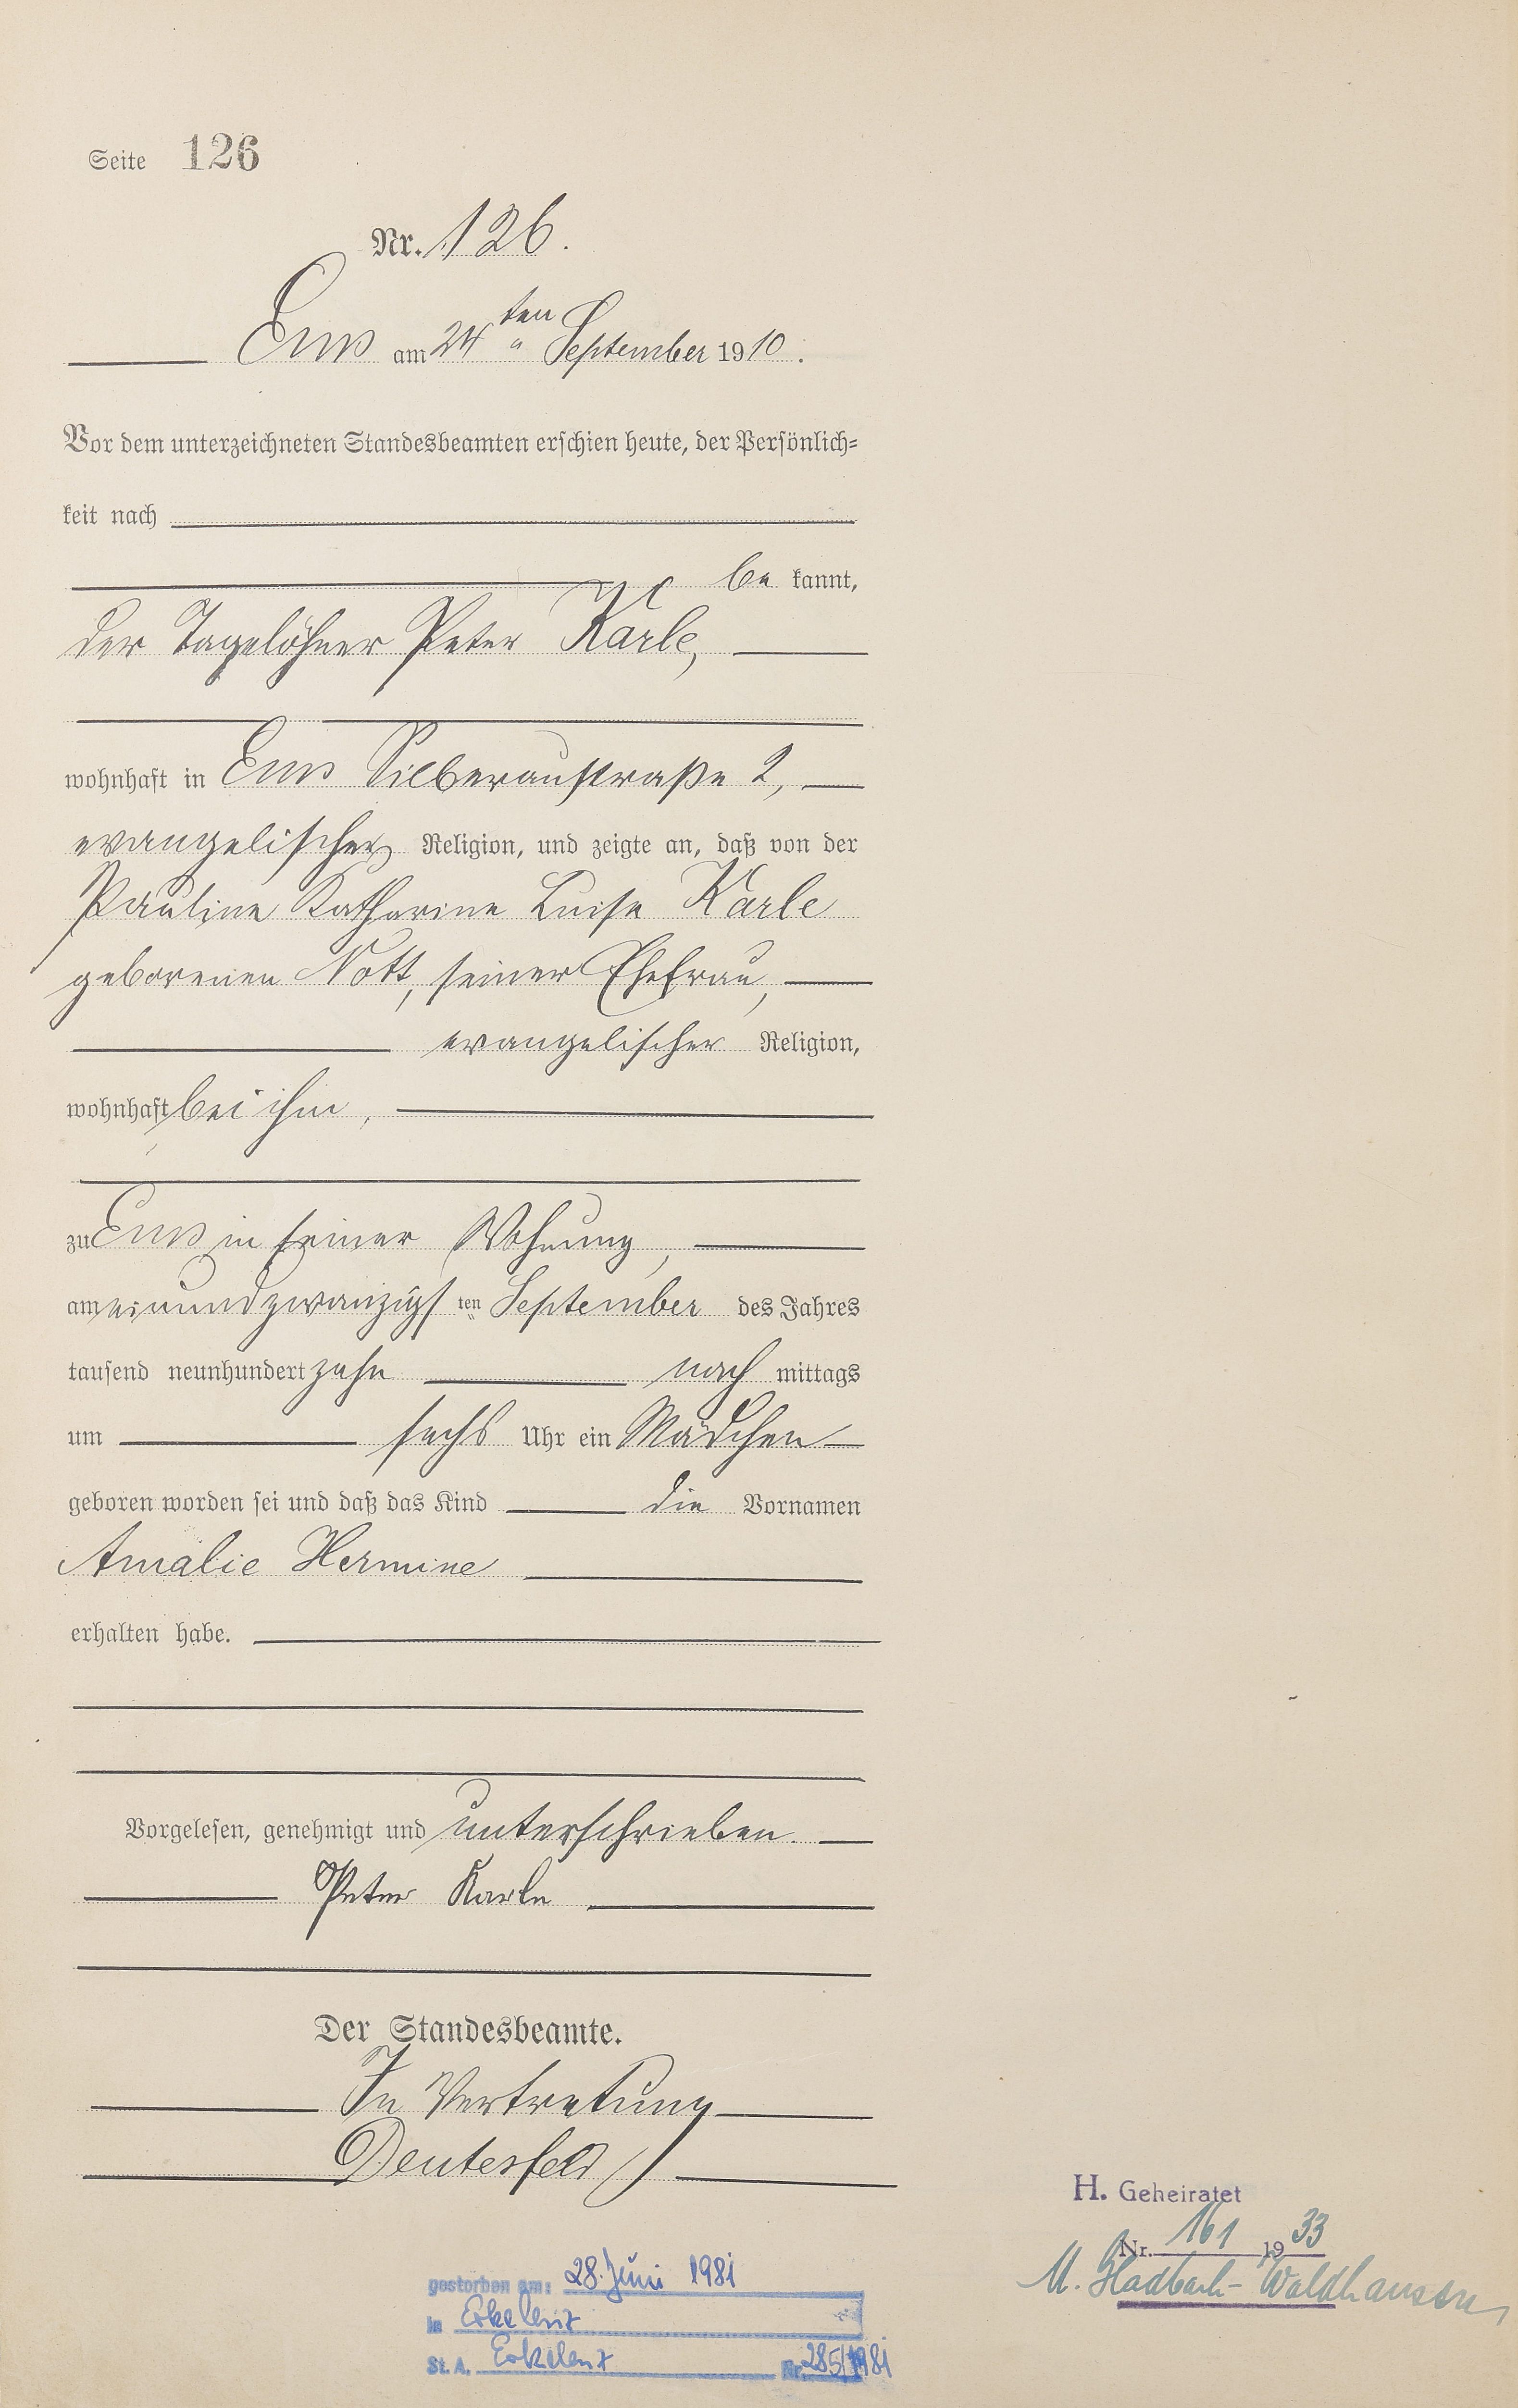 Seite 126
Nr. 126.
Ems am 24ten September 1910.
Vor dem unterzeichneten Standesbeamten erschien heute, der Persönlich-
keit nach
be kannt,
der Tagelöhner Peter Karle,
wohnhaft in Ems Silberaustraße 2,
evangelischer Religion, und zeigte an, daß von der
Pauline Katharine Luise Karle
geborenen Nott, seiner Ehefrau,
evangelischer Religion,
wohnhaft bei ihm,
zu Ems in seiner Wohnung,
am einundzwanzigsten September des Jahres
tausend neunhundert zehn nach mittags
um sechs Uhr ein Mädchen
geboren worden sei und daß das Kind die Vornamen
Amalie Hermine
erhalten habe.
Vorgelesen, genehmigt und unterschrieben.
Peter Karle
Der Standesbeamte.
In Vertretung
Deutesfeld
H. Geheiratet
Nr. 161 1933
M. Gladbach-Waldhausen
gestorben am: 28. Juni 1981
in Erkelenz
St. A. Erkelenz Nr. 285/1981